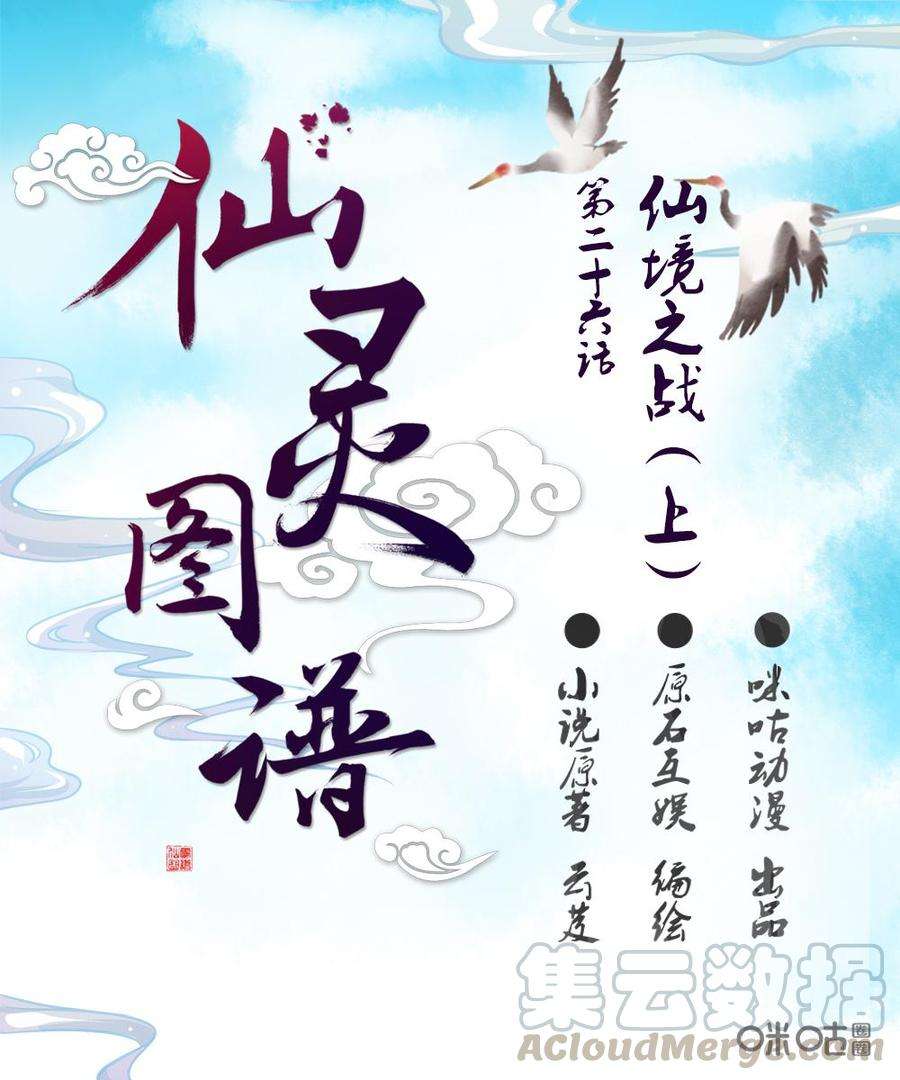 仙灵图谱
仙境之战（上）
第二十六话
咪咕动漫 出品
原石互娱 编绘
小说原著 云芨
集云数据
ACloudMerge.com
咪咕圈圈